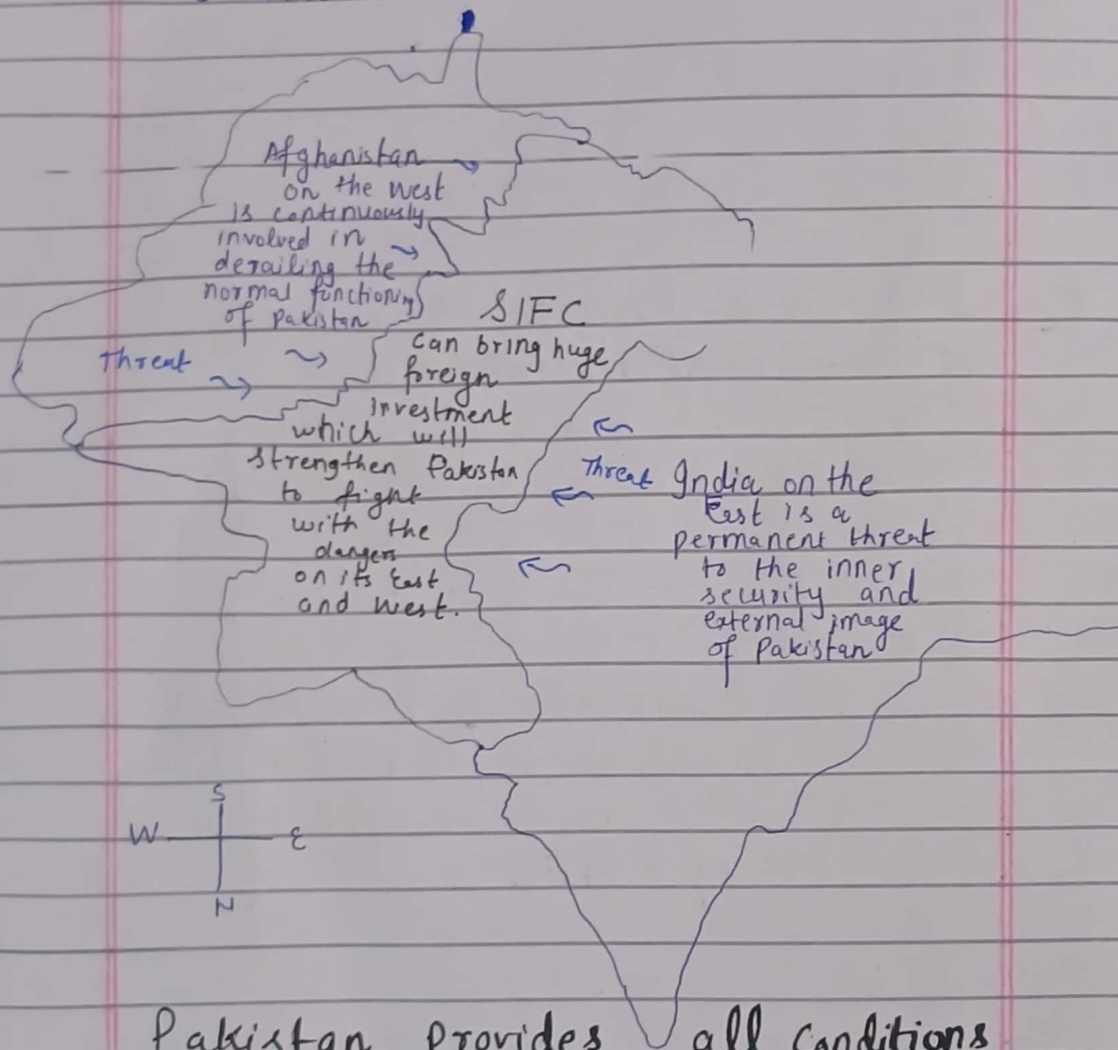 Afghanistan
on the west
is continuously
involved in
derailing the
normal functioning
of Pakistan
Threat
SIFC
can bring huge
foreign
investment
which will
strengthen Pakistan
to fight
with the
dangers
on its East
and west.
Threat
India on the
East is a
permanent threat
to the inner
security and
external image
of Pakistan
S
W
E
N
Pakistan provides all conditions